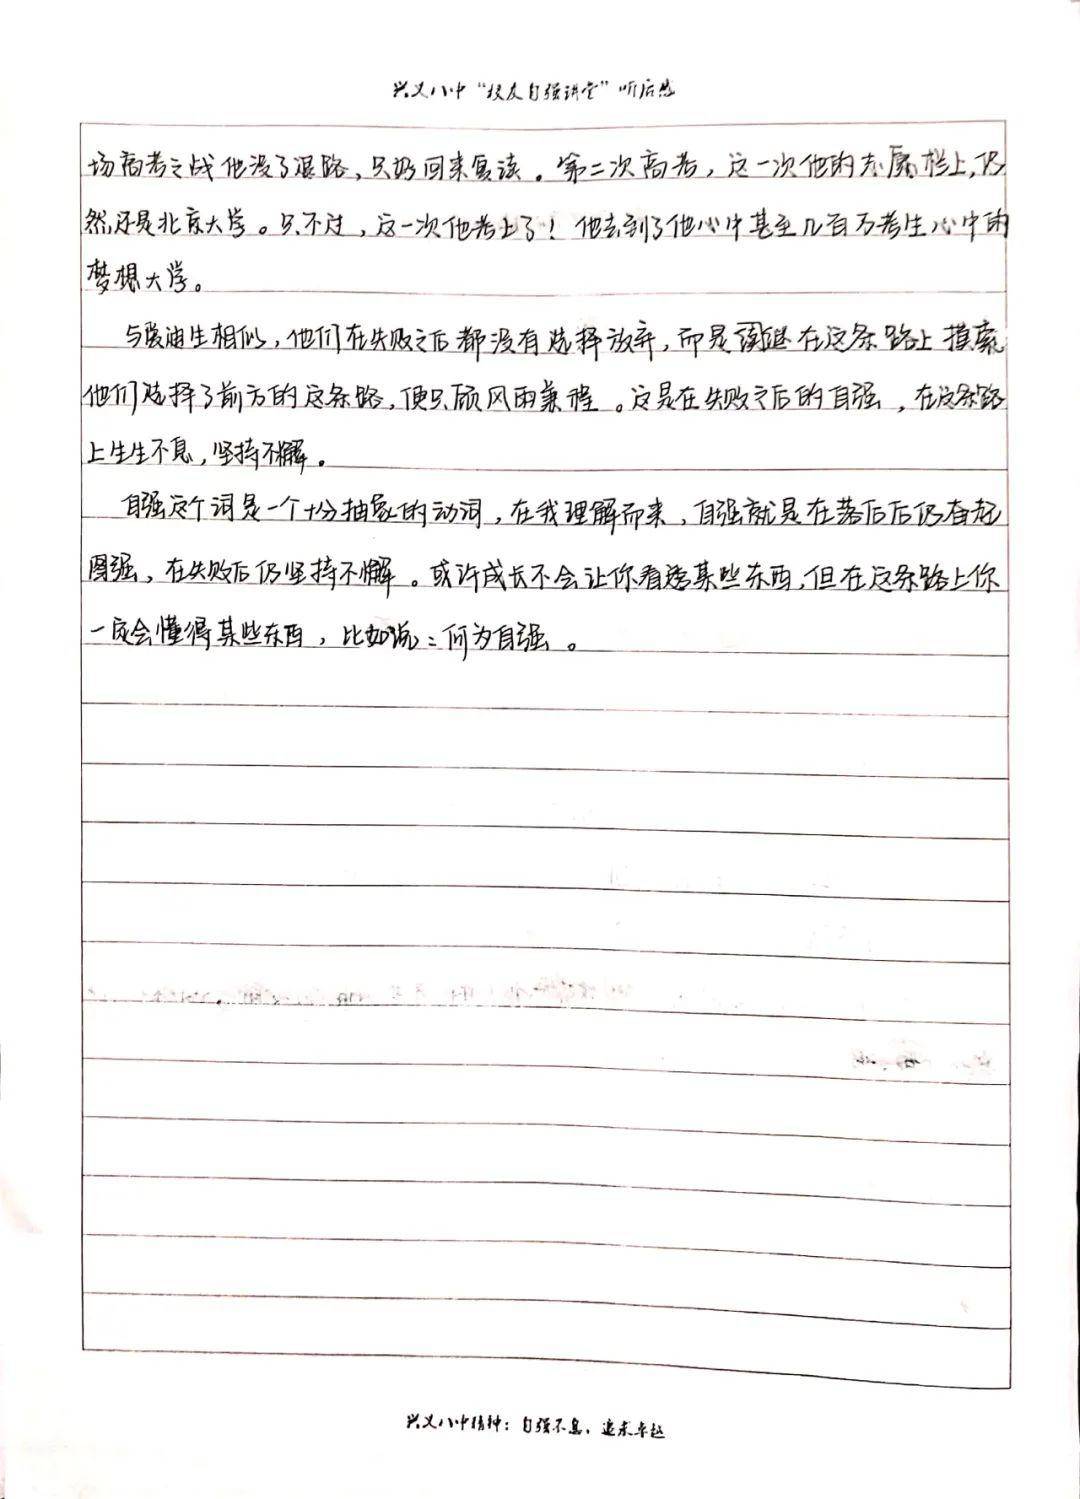 兴义八中“校友自强讲堂”听后感
场高考之战他没了退路，只好回来复读。第二次高考，这一次他的志愿栏上，仍
然还是北京大学。只不过，这一次他考上了！他去到了他心中甚至几百万考生心中的
梦想大学。
与安迪生相似，他们在失败之后都没有选择放弃，而是继在这条路上摸索
他们选择了前方的这条路，便只顾风雨兼程。这是在失败之后的自强，在这条路
上生生不息，坚持不懈。
自强这个词是一个十分抽象的动词，在我理解而来，自强就是在落后后仍奋起
图强，在失败后仍坚持不懈。或许成长不会让你看透某些东西，但在这条路上你
一定会懂得某些东西，比如说：何为自强。
兴义八中精神：自强不息，追求卓越